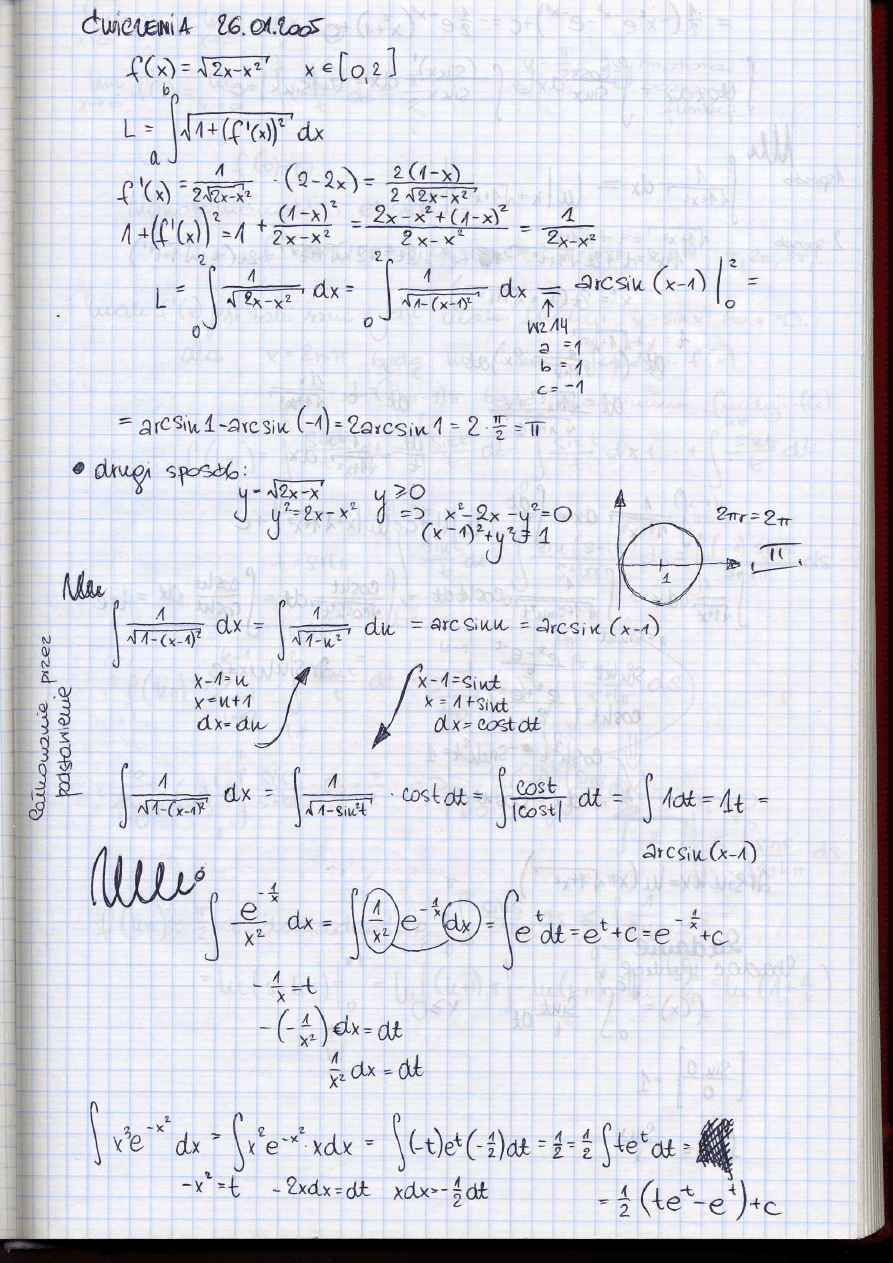 ĆWICZENIA 26.01.2005
f(x) = √(2x-x²) x ∈ [0,2]
L = ∫_a^b √(1+(f'(x))²) dx
f'(x) = 1/(2√(2x-x²)) · (2-2x) = 2(1-x)/(2√(2x-x²))
1+(f'(x))² = 1 + (1-x)²/(2x-x²) = (2x-x²+(1-x)²)/(2x-x²) = 1/(2x-x²)
L = ∫_0^2 1/√(2x-x²) dx = ∫_0^2 1/√(1-(x-1)²) dx = arcsin (x-1) |_0^2 =
↑
WZ 14
a = 1
b = 1
c = -1
= arcsin 1 - arcsin (-1) = 2arcsin 1 = 2 · π/2 = π
• drugi sposób:
y = √(2x-x²) y ≥ 0
y² = 2x-x² => x²-2x-y²=0
(x-1)²+y² = 1
2πr = 2π
π
1
∫ 1/√(1-(x-1)²) dx = ∫ 1/√(1-u²) du = arcsin u = arcsin (x-1)
x-1 = u
x = u+1
dx = du
x-1 = sint
x = 1+sint
dx = cost dt
całkowanie przez
podstawienie
∫ 1/√(1-(x-1)²) dx = ∫ 1/√(1-sin²t) · cost dt = ∫ cost/|cost| dt = ∫ 1dt = 1t =
arcsin (x-1)
∫ e^(-1/x)/x² dx = ∫ 1/x² e^(-1/x) dx = ∫ e^t dt = e^t + c = e^(-1/x) + c
-1/x = t
-(-1/x²) dx = dt
1/x² dx = dt
∫ x³e^(-x²) dx = ∫ x²e^(-x²) · x dx = ∫ (-t)e^t (-1/2) dt = 1/2 = 1/2 ∫ te^t dt =
-x² = t -2xdx = dt xdx = -1/2 dt
= 1/2 (te^t - e^t) + c